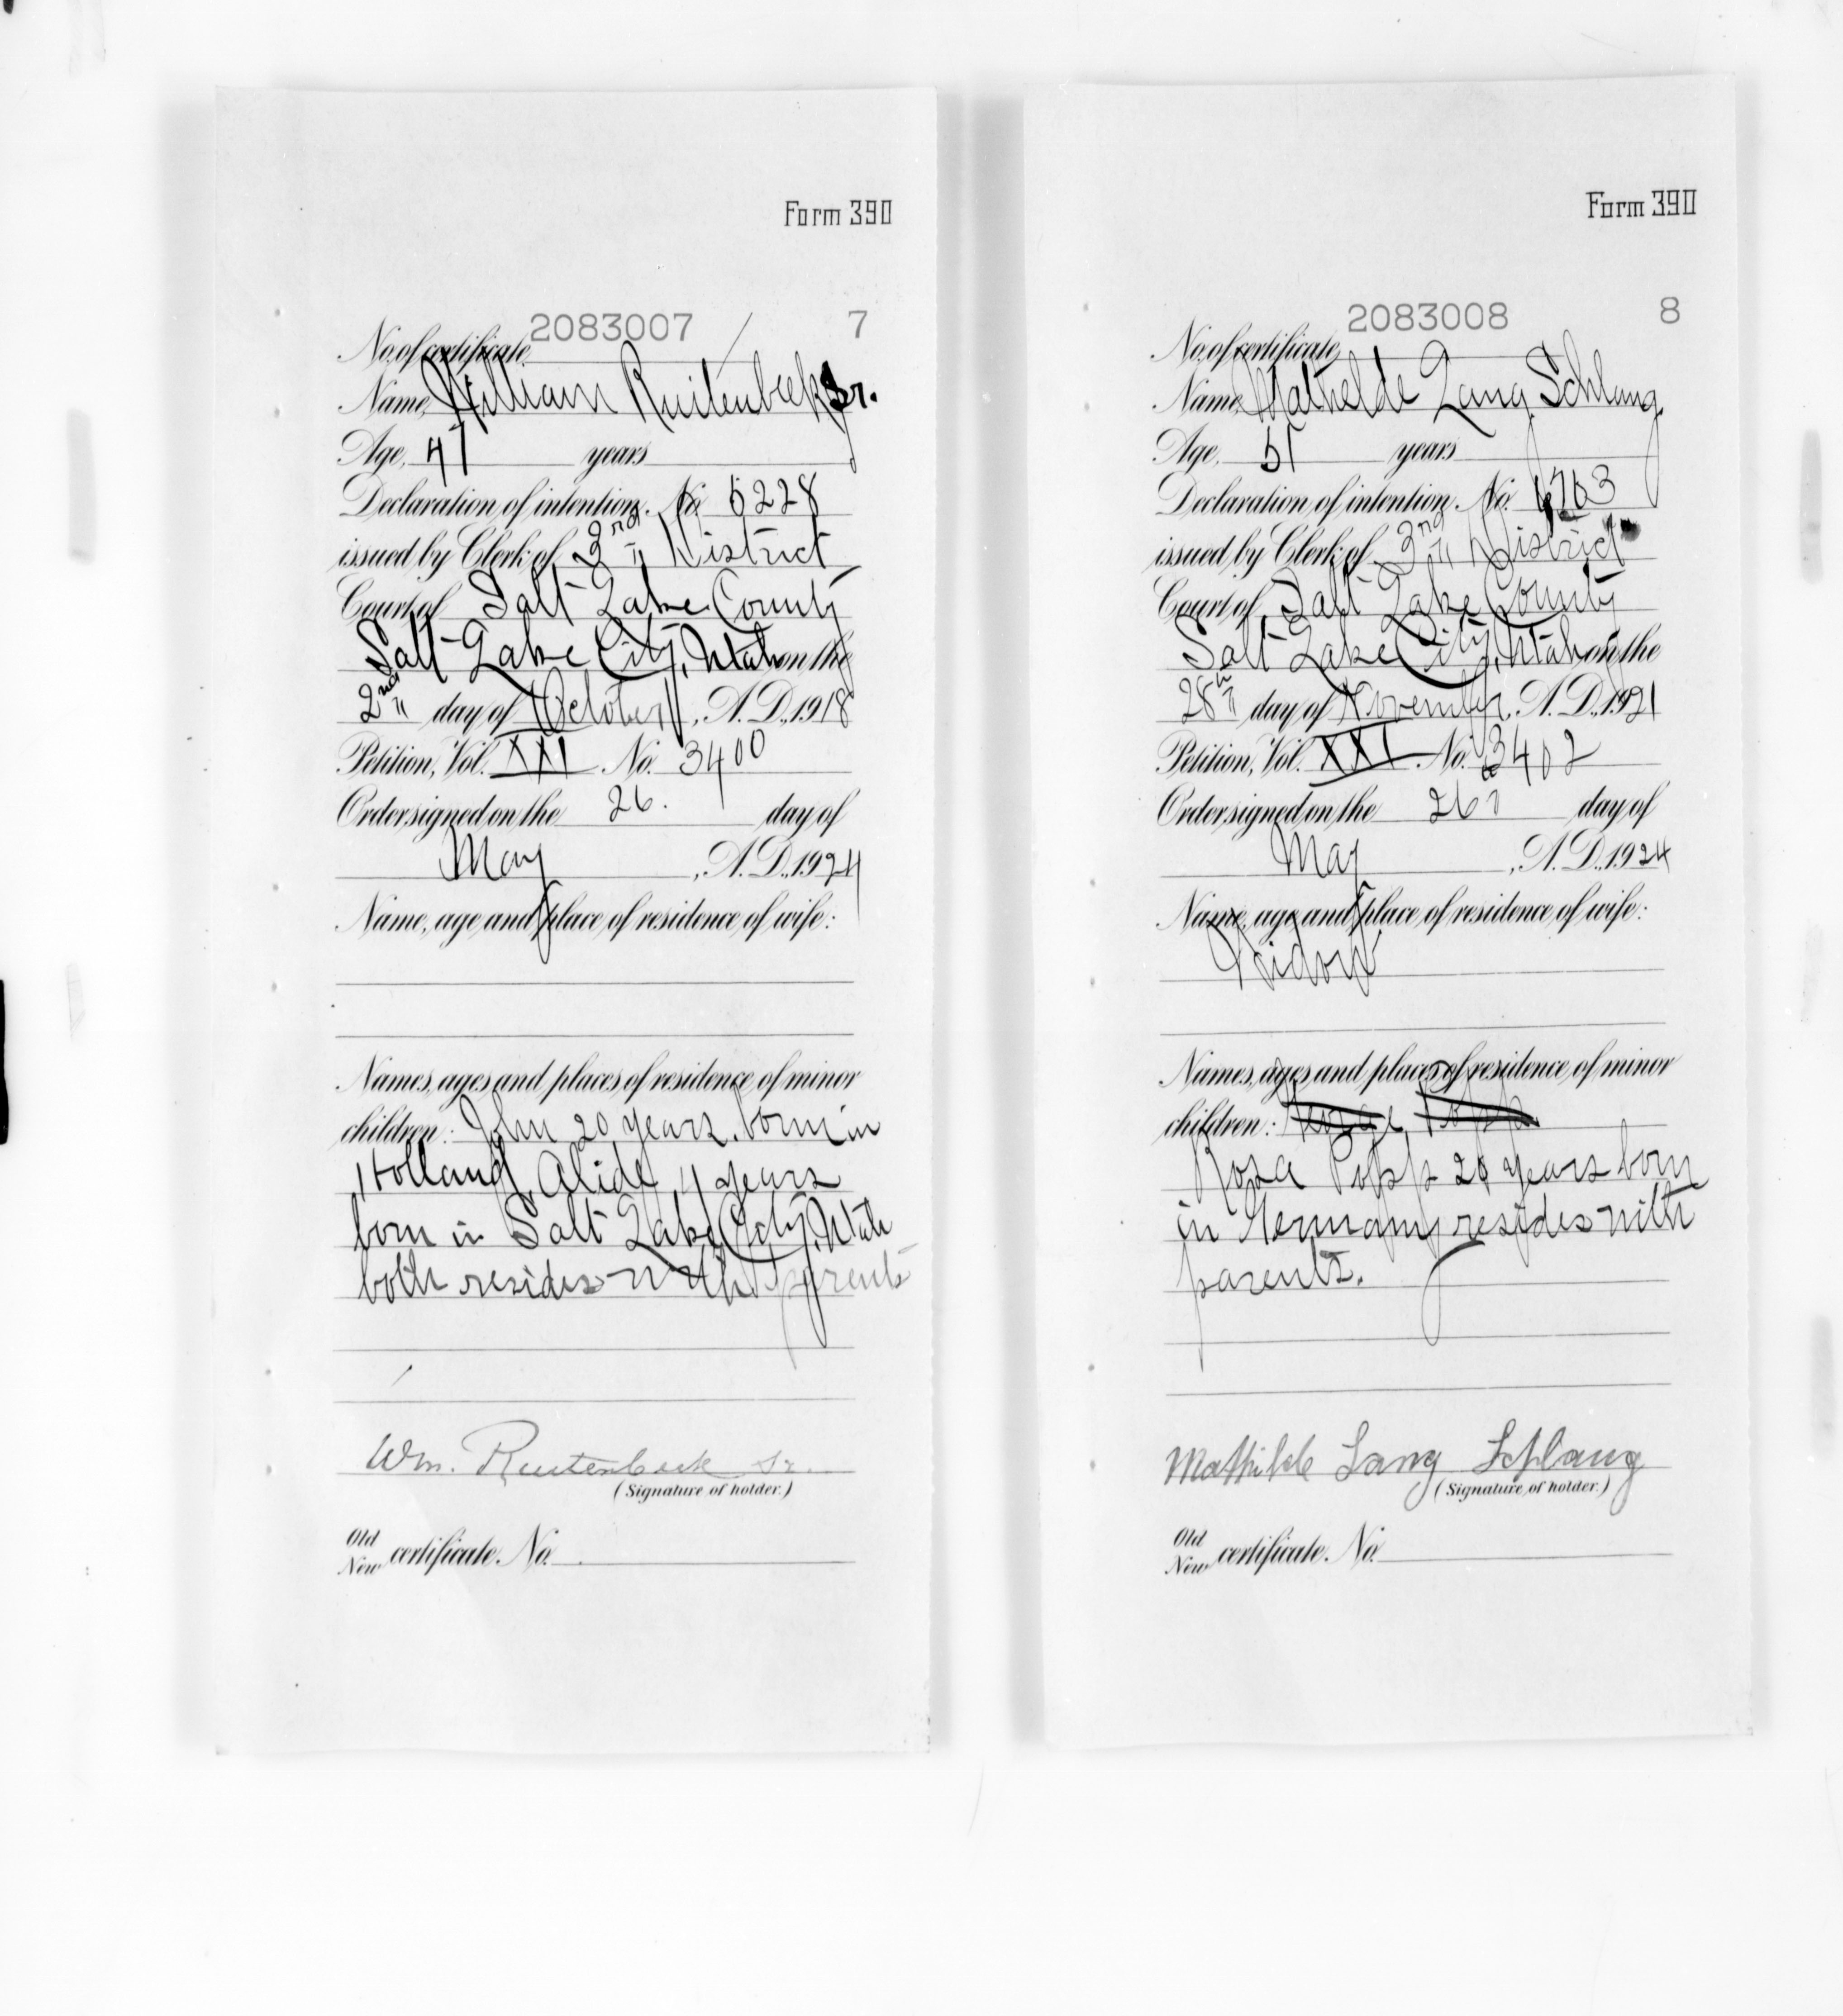 Form 390
2083007 7
No. of certificate
Name William Ruitenbeek Sr.
Age, 47 years
Declaration of intention. No. 6228
issued by Clerk of 3rd District
Court of Salt Lake County
Salt Lake City, Utah on the
2nd day of October, A. D., 1918
Petition, Vol. XXI No. 3400
Order signed on the 26. day of
May, A. D., 1924
Name, age and place of residence of wife:
Names, ages and places of residence of minor
children: John 20 years born in
Holland Alide 4 years
born in Salt Lake City, Utah
both resides with parents
Wm. Ruitenbeek Sr.
(Signature of holder.)
Old
New certificate No.
Form 390
2083008 8
No. of certificate
Name Mathelde Lang Schlang
Age, 51 years
Declaration of intention. No. 6763
issued by Clerk of 3rd District
Court of Salt Lake County
Salt Lake City, Utah on the
28th day of November, A. D., 1921
Petition, Vol. XXI No. 3402
Order signed on the 26 day of
May, A. D., 1924
Name, age and place of residence of wife:
Widow
Names, ages and places of residence of minor
children: George Popp
Rosa Popp 20 years born
in Germany resides with
parents.
Mathilde Lang Schlang
(Signature of holder.)
Old
New certificate No.